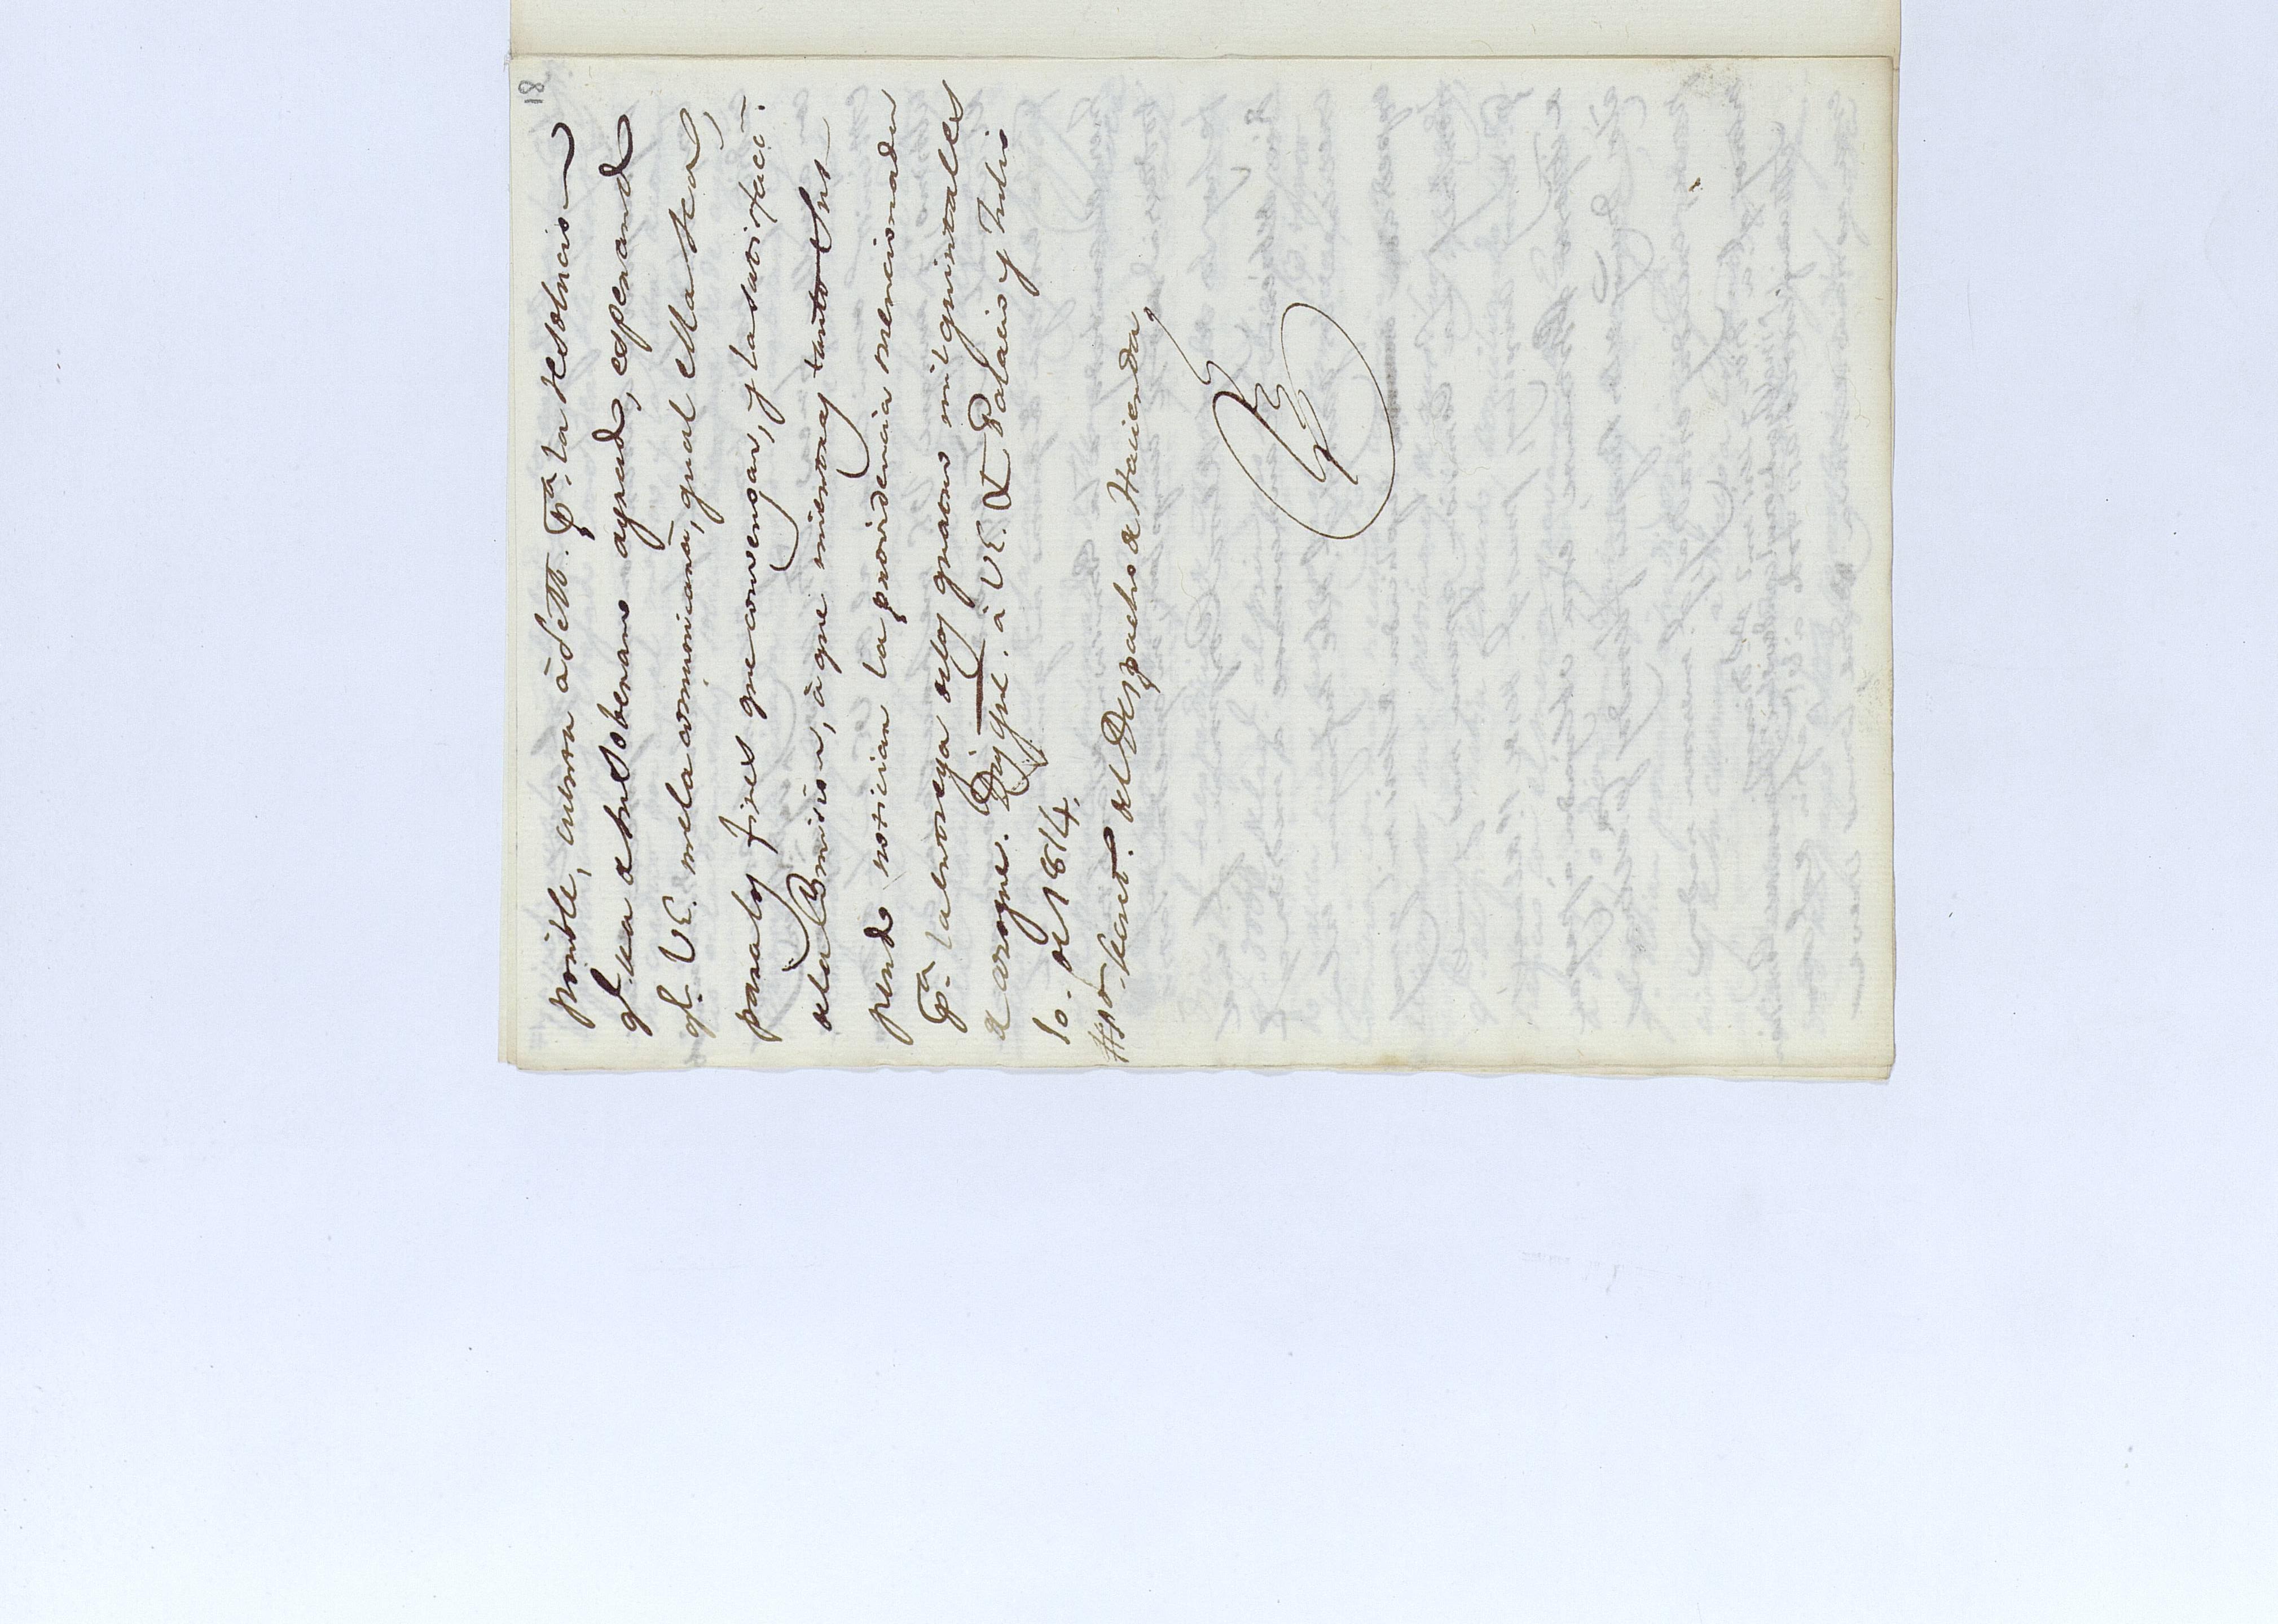 18
posible, cuenta à S. M. pa. la resolucion
qe. sea de su Soberano agrado, esperando
qe. VE. me la comunicarà, qual ella sea,
para los fines que convengan, y la satisfaccn.
de la Comision, à que mientras tanto Sus
pendo noticiar la providencia mencionada
pa. la entrega de los quatro mil quintales
de azogue. Dios gue. à VE. Palacio y Julio
10. de 1814.
Sor. Secreto. del Despacho de Hacienda